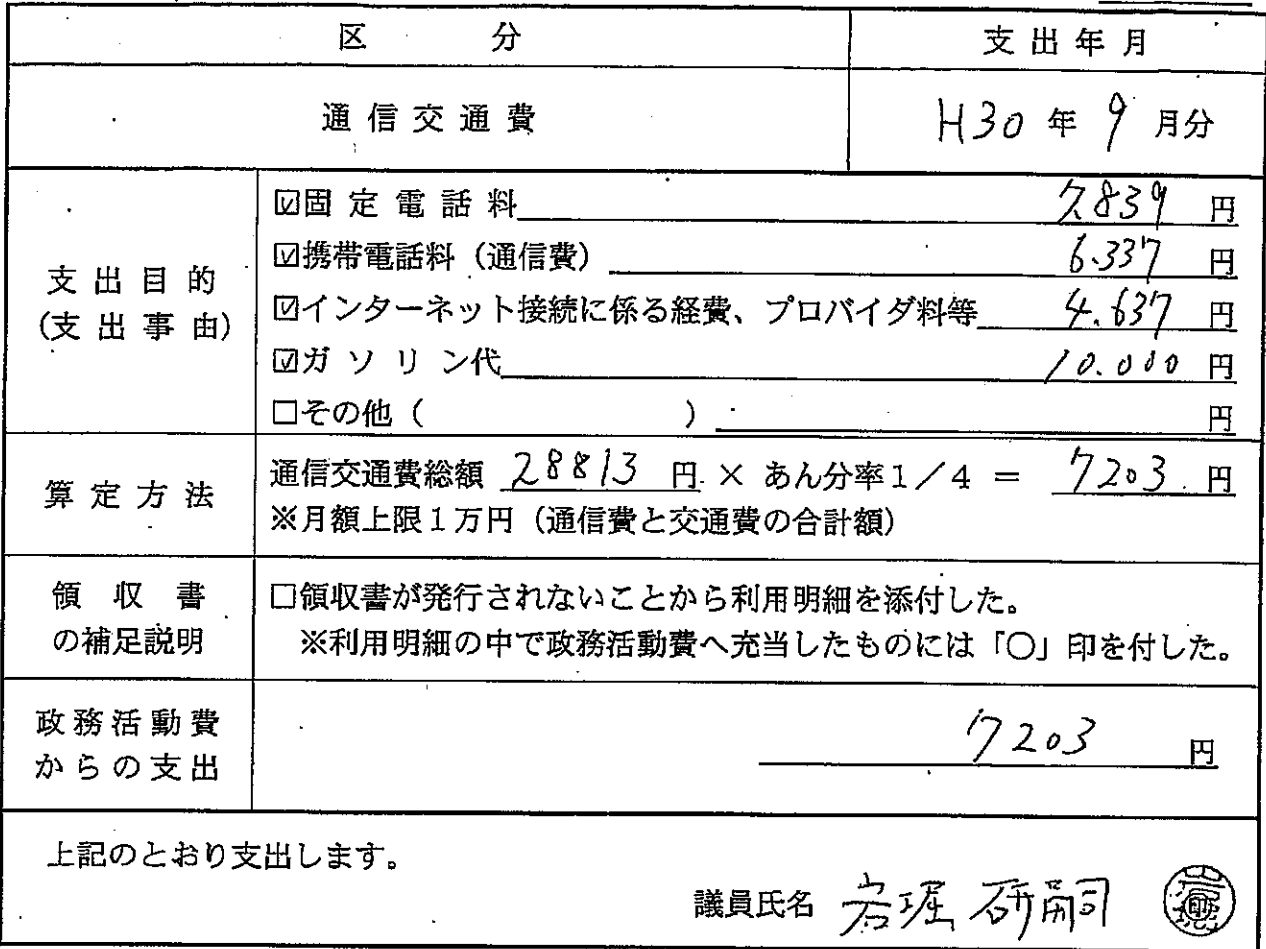 区分 支出年月
通信交通費 H30年9月分
支出目的
(支出事由)
☑固定電話料 7.839 円
☑携帯電話料（通信費） 6.337 円
☑インターネット接続に係る経費、プロバイダ料等 4.637 円
☑ガソリン代 10.000 円
□その他（ ） 円
算定方法
通信交通費総額 28813 円 × あん分率1／4 ＝ 7203 円
※月額上限1万円（通信費と交通費の合計額）
領収書
の補足説明
□領収書が発行されないことから利用明細を添付した。
※利用明細の中で政務活動費へ充当したものには「○」印を付した。
政務活動費
からの支出
7203 円
上記のとおり支出します。
議員氏名 岩堀研嗣